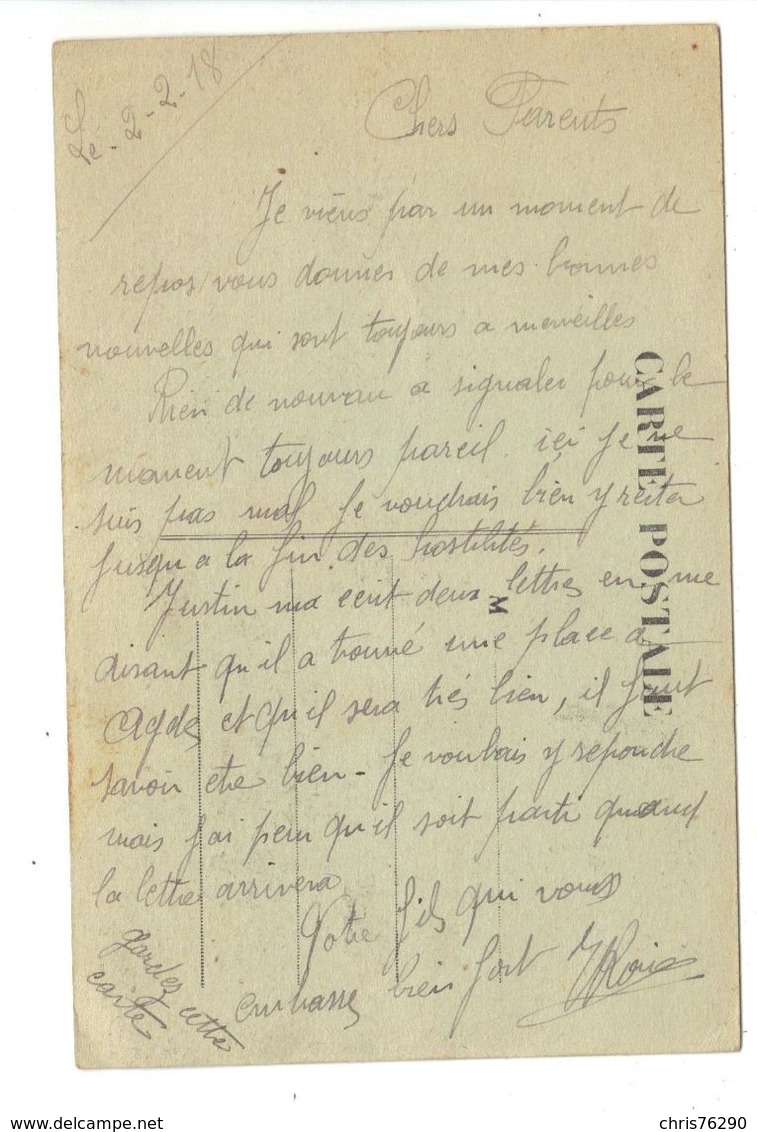 Le - 2-2-18
Chers Parents
Je viens par un moment de
repos vous donner de mes bonnes
nouvelles qui sont toujours a merveilles
Rien de nouvau a signaler pour le
moment toujours pareil. içi je ne
suis pas mal Je voudrais bien y rester
jusqu a la fin des hostilités.
Justin ma ecrit deux lettres en me
disant qu'il a trouvé une place a
Agde, et qu'il sera très bien, il faut
savoir etre bien - Je voulais y repondre
mais j'ai peur qu'il soit parti quand
la lettre arrivera
Votre fils qui vous
embrasse bien fort
gardez cette
carte
CARTE POSTALE
M
chris76290